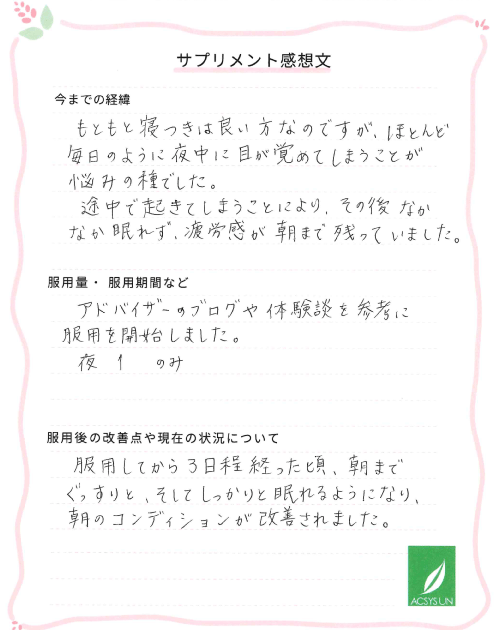 サプリメント感想文
今までの経緯
もともと寝つきは良い方なのですが、ほとんど
毎日のように夜中に目が覚めてしまうことが
悩みの種でした。
途中で起きてしまうことにより、その後なか
なか眠れず、疲労感が朝まで残っていました。
服用量・服用期間など
アドバイザーのブログや体験談を参考に
服用を開始しました。
夜 1 のみ
服用後の改善点や現在の状況について
服用してから3日程経った頃、朝まで
ぐっすりと、そしてしっかりと眠れるようになり、
朝のコンディションが改善されました。
ACSYS UN